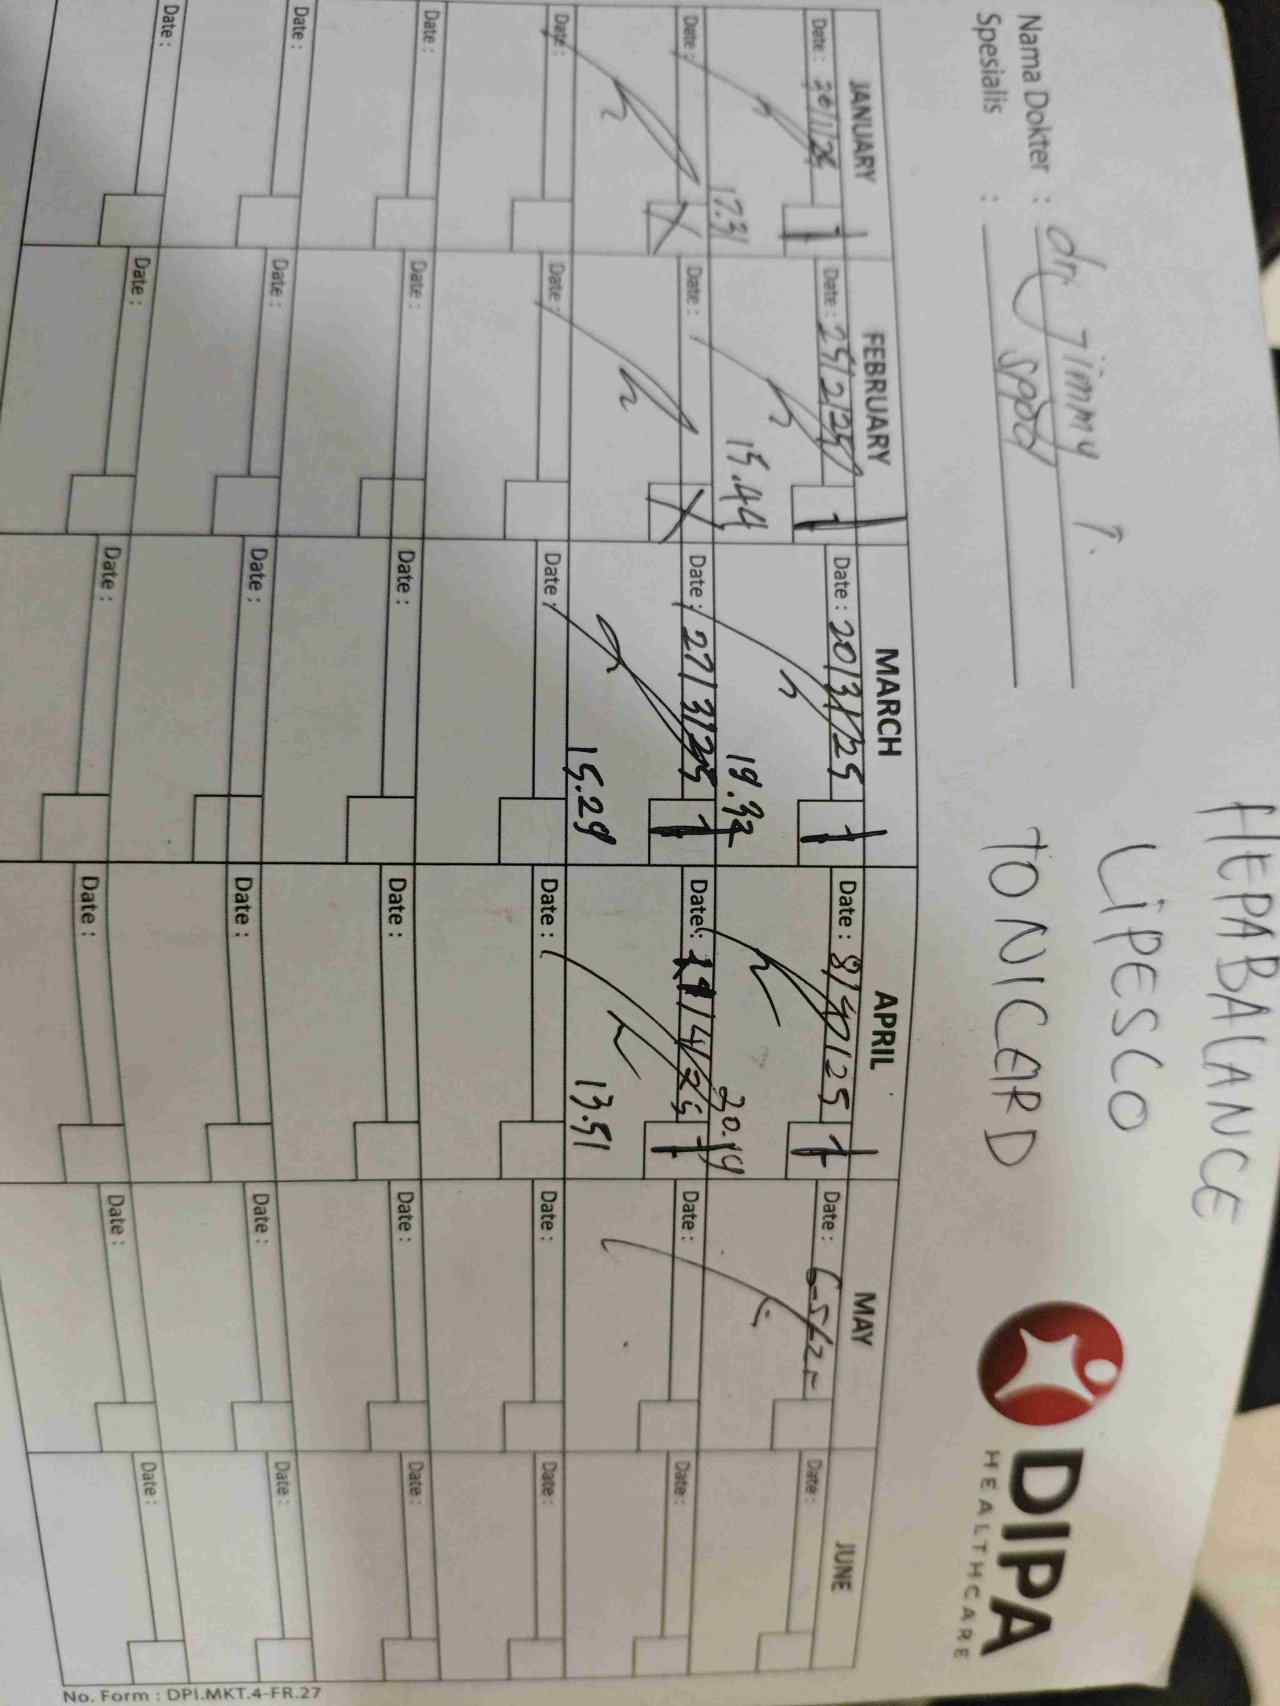 HEPABALANCE
LIPESCO
TONICARD
DIPA
HEALTHCARE
Nama Dokter : dr. Jimmy T.
Spesialis : sppd
JANUARY FEBRUARY MARCH APRIL MAY JUNE
Date : Date : 25/2/25 1 Date : 20/3/25 1 Date : 8/4/25 1 Date : Date :
17.31 15.44 19.32 20.19
Date : X Date : X Date : 27/3/25 1 Date : /4/25 1 Date : Date :
15.29 13.51
Date : Date : Date : Date : Date : Date :
Date : Date : Date : Date : Date : Date :
Date : Date : Date : Date : Date : Date :
Date : Date : Date : Date : Date : Date :
No. Form : DPI.MKT.4-FR.27